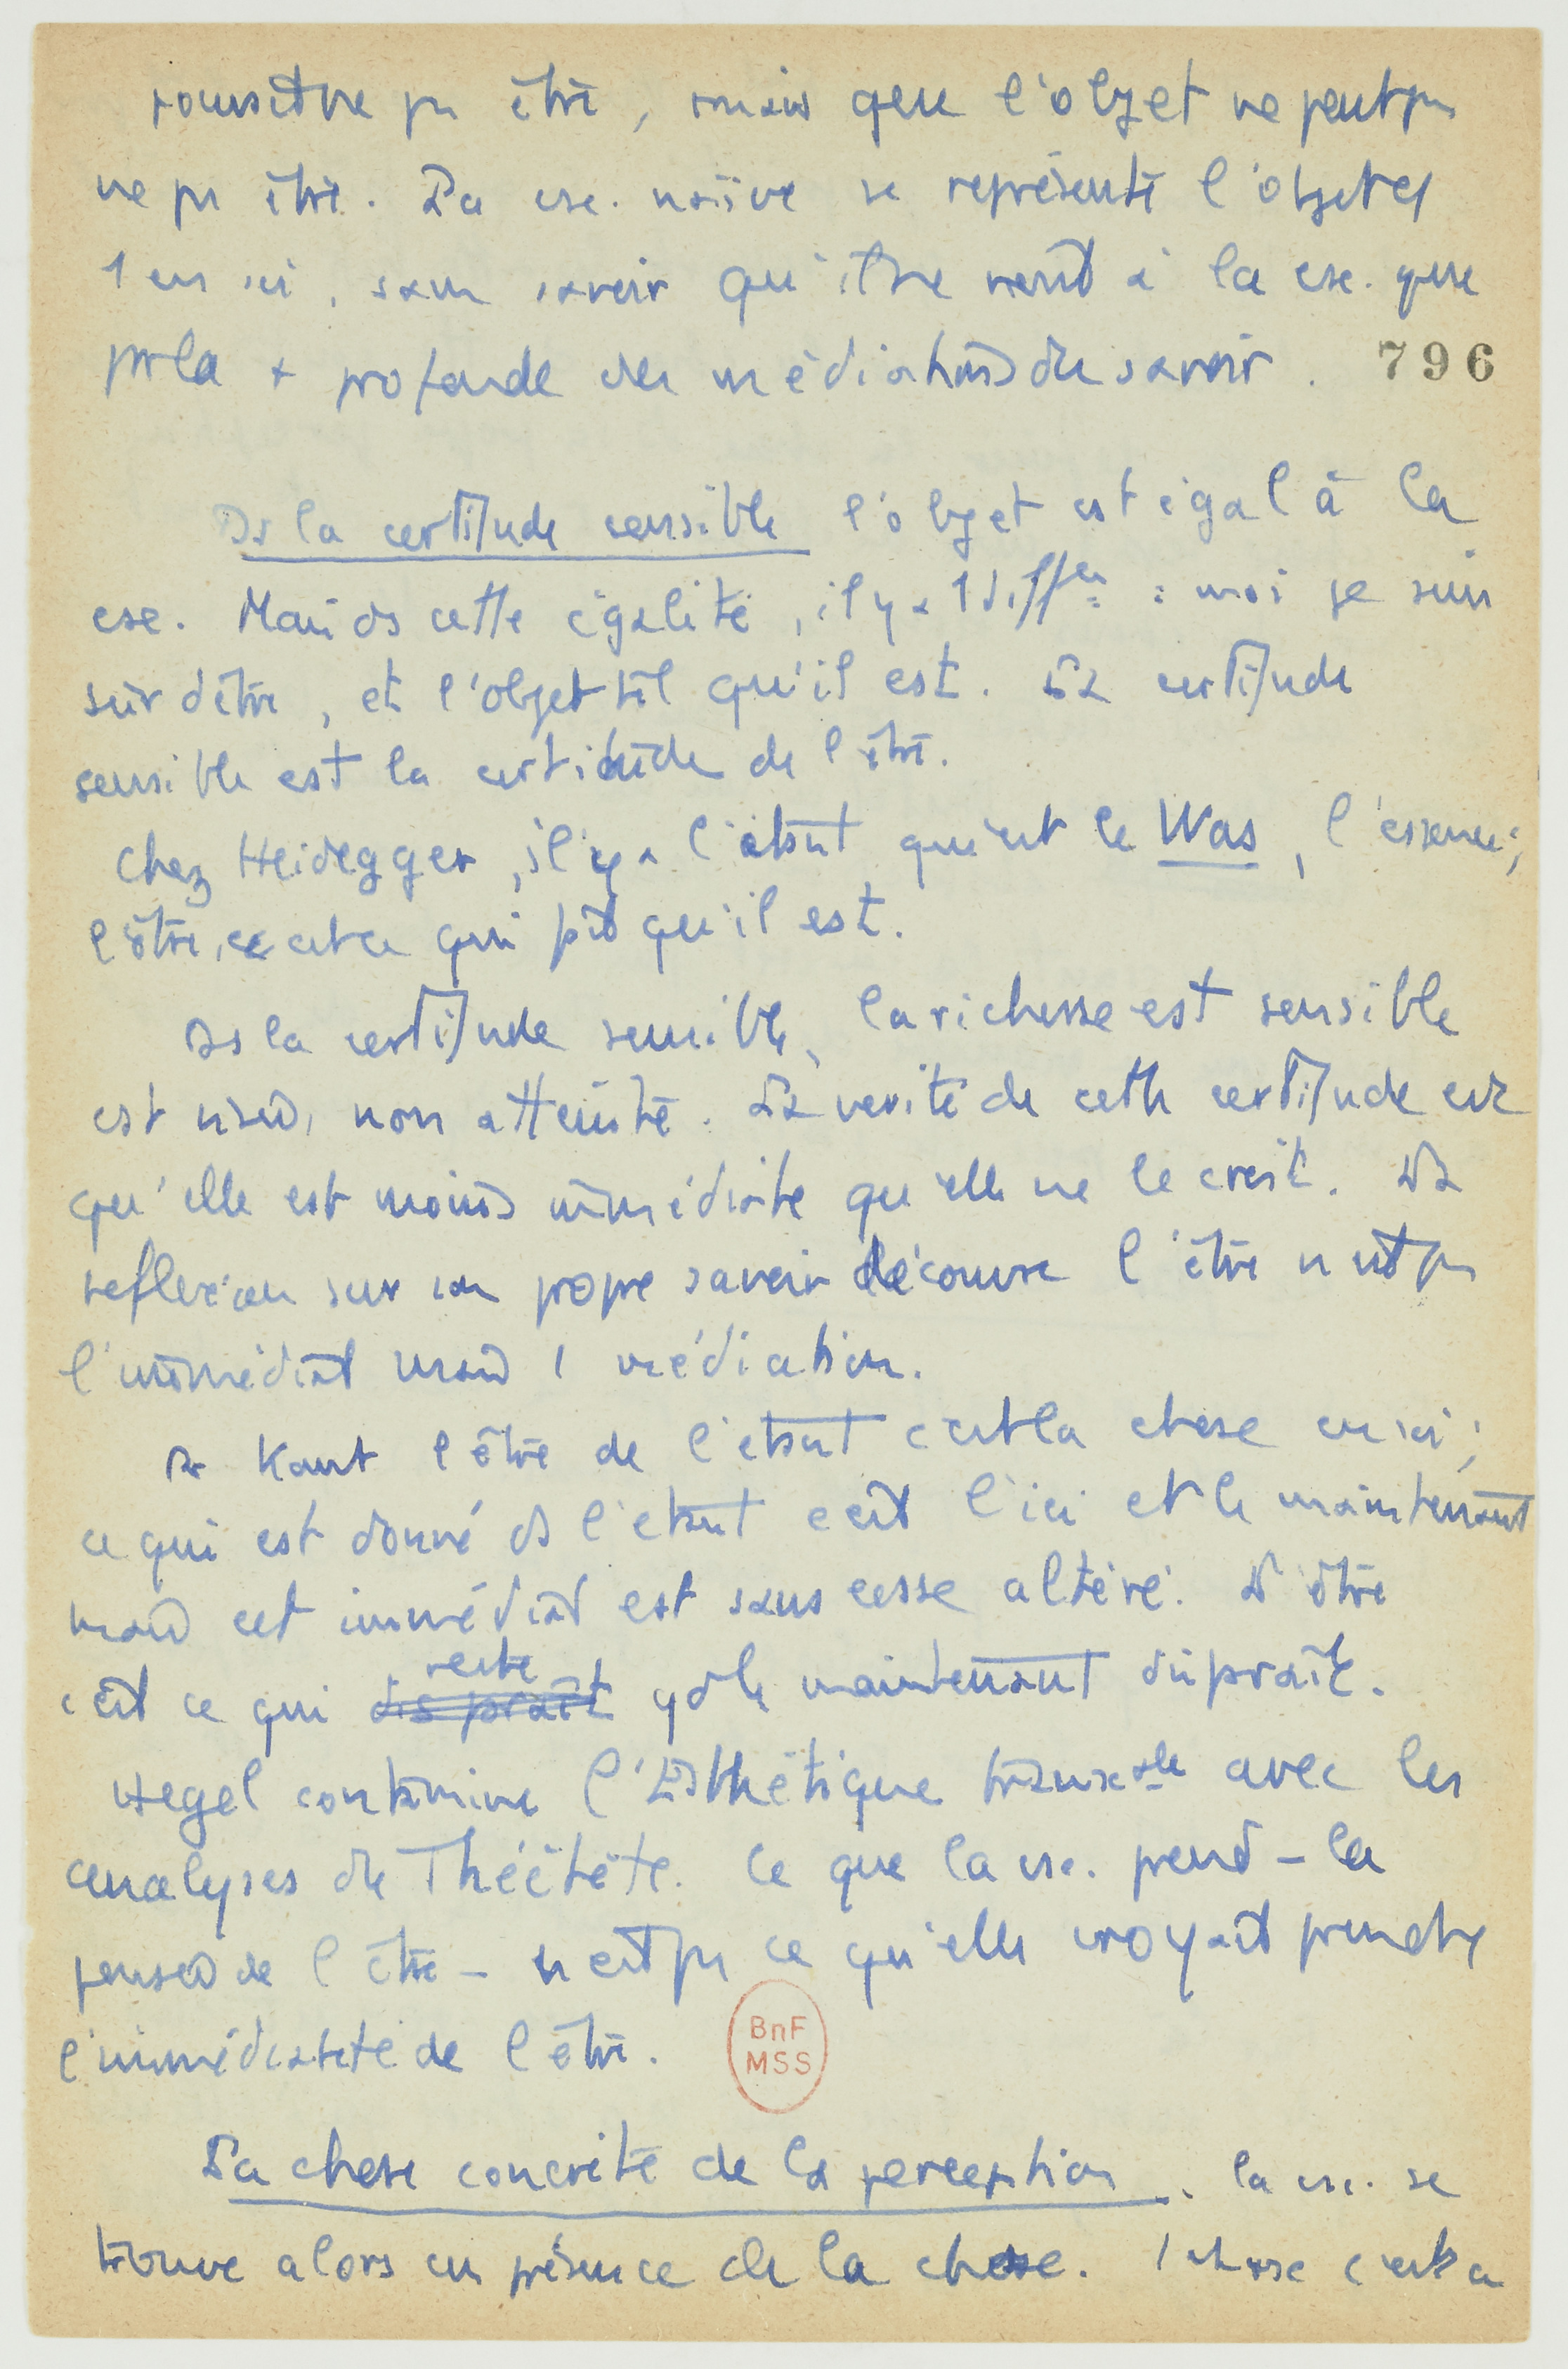 pourrait ne pas être, mais que l'objet ne peut pas
ne pas être. La csc. naïve se représente l'objet cô
1 en soi, sans savoir qu'il ne vient à la csc. que
par la + profonde des médiations du savoir. 796
Ds la certitude sensible l'objet est égal à la
csc. Mais ds cette égalité, il y a 1 diffce : moi je suis
sûr d'être, et l'objet tel qu'il est. La certitude
sensible est la certitude de l'être.
Chez Heidegger, il y a l'étant qui est le Was, l'essence;
l'être, c'est ce qui fait qu'il est.
Ds la certitude sensible, la richesse est sensible
est visée, non atteinte. La vérité de cette certitude est
qu'elle est moins immédiate qu'elle ne le croit. La
reflexion sur son propre savoir découvre l'être n'est pas
l'immédiat mais 1 médiation.
Ds Kant l'être de l'étant c'est la chose en soi;
ce qui est donné ds l'étant c'est l'ici et le maintenant
mais cet immédiat est sans cesse altéré. L'être
c'est ce qui disparaît reste qd le maintenant disparaît.
Hegel contamine l'Esthétique transcale avec les
analyses du Théétète. Ce que la csc. prend - la
pensée de l'être - n'est pas ce qu'elle croyait prendre
l'immédiateté de l'être.
BnF
MSS
La chose concrète de la perception. la csc. se
trouve alors en présence de la chose. 1 chose c'est a